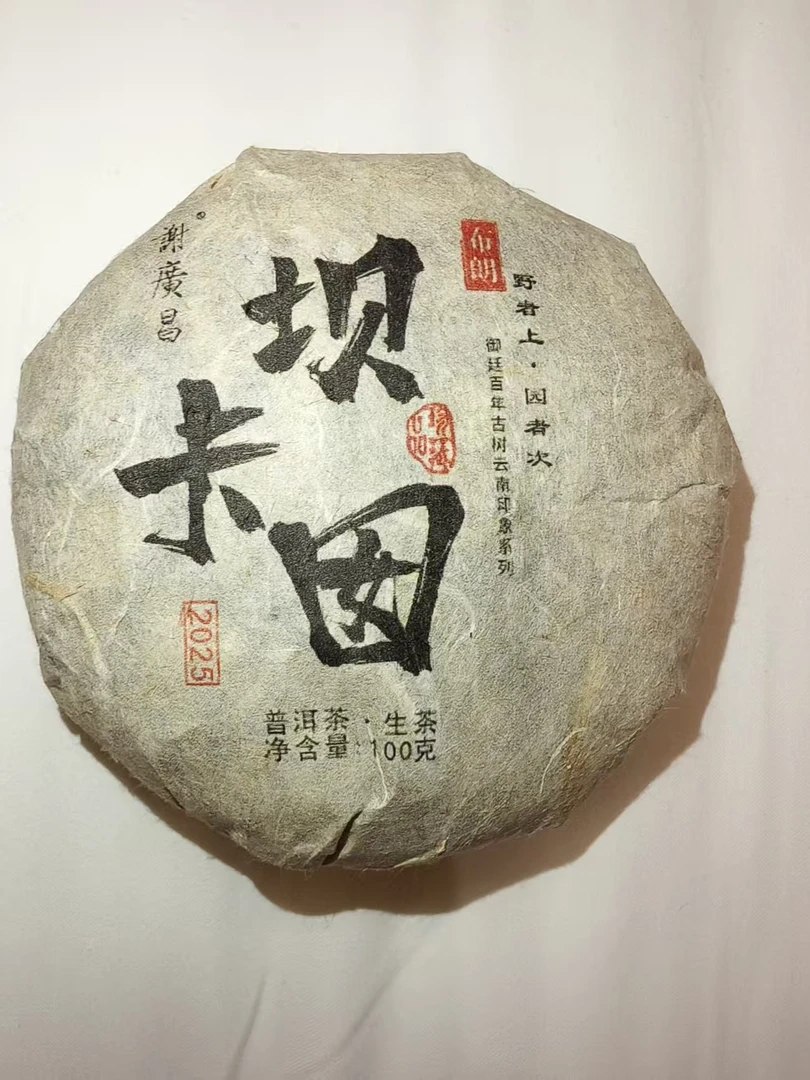 謝廣昌®
坝卡囡
布朗
野者上·园者次
御廷百年古树云南印象系列
2025
普洱茶·生茶
净含量:100克